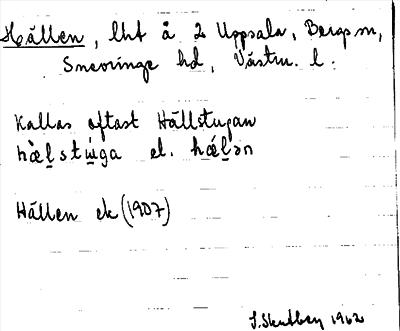 Hällen, lht å 2 Uppsala, Bergs sn,
Snevringe hd, Västm. l.
Kallas oftast Hällstugan
hæ̀l̠stu̠ga el. hǽl̠ən
Hällen ek (1907)
S. Skutberg 1962